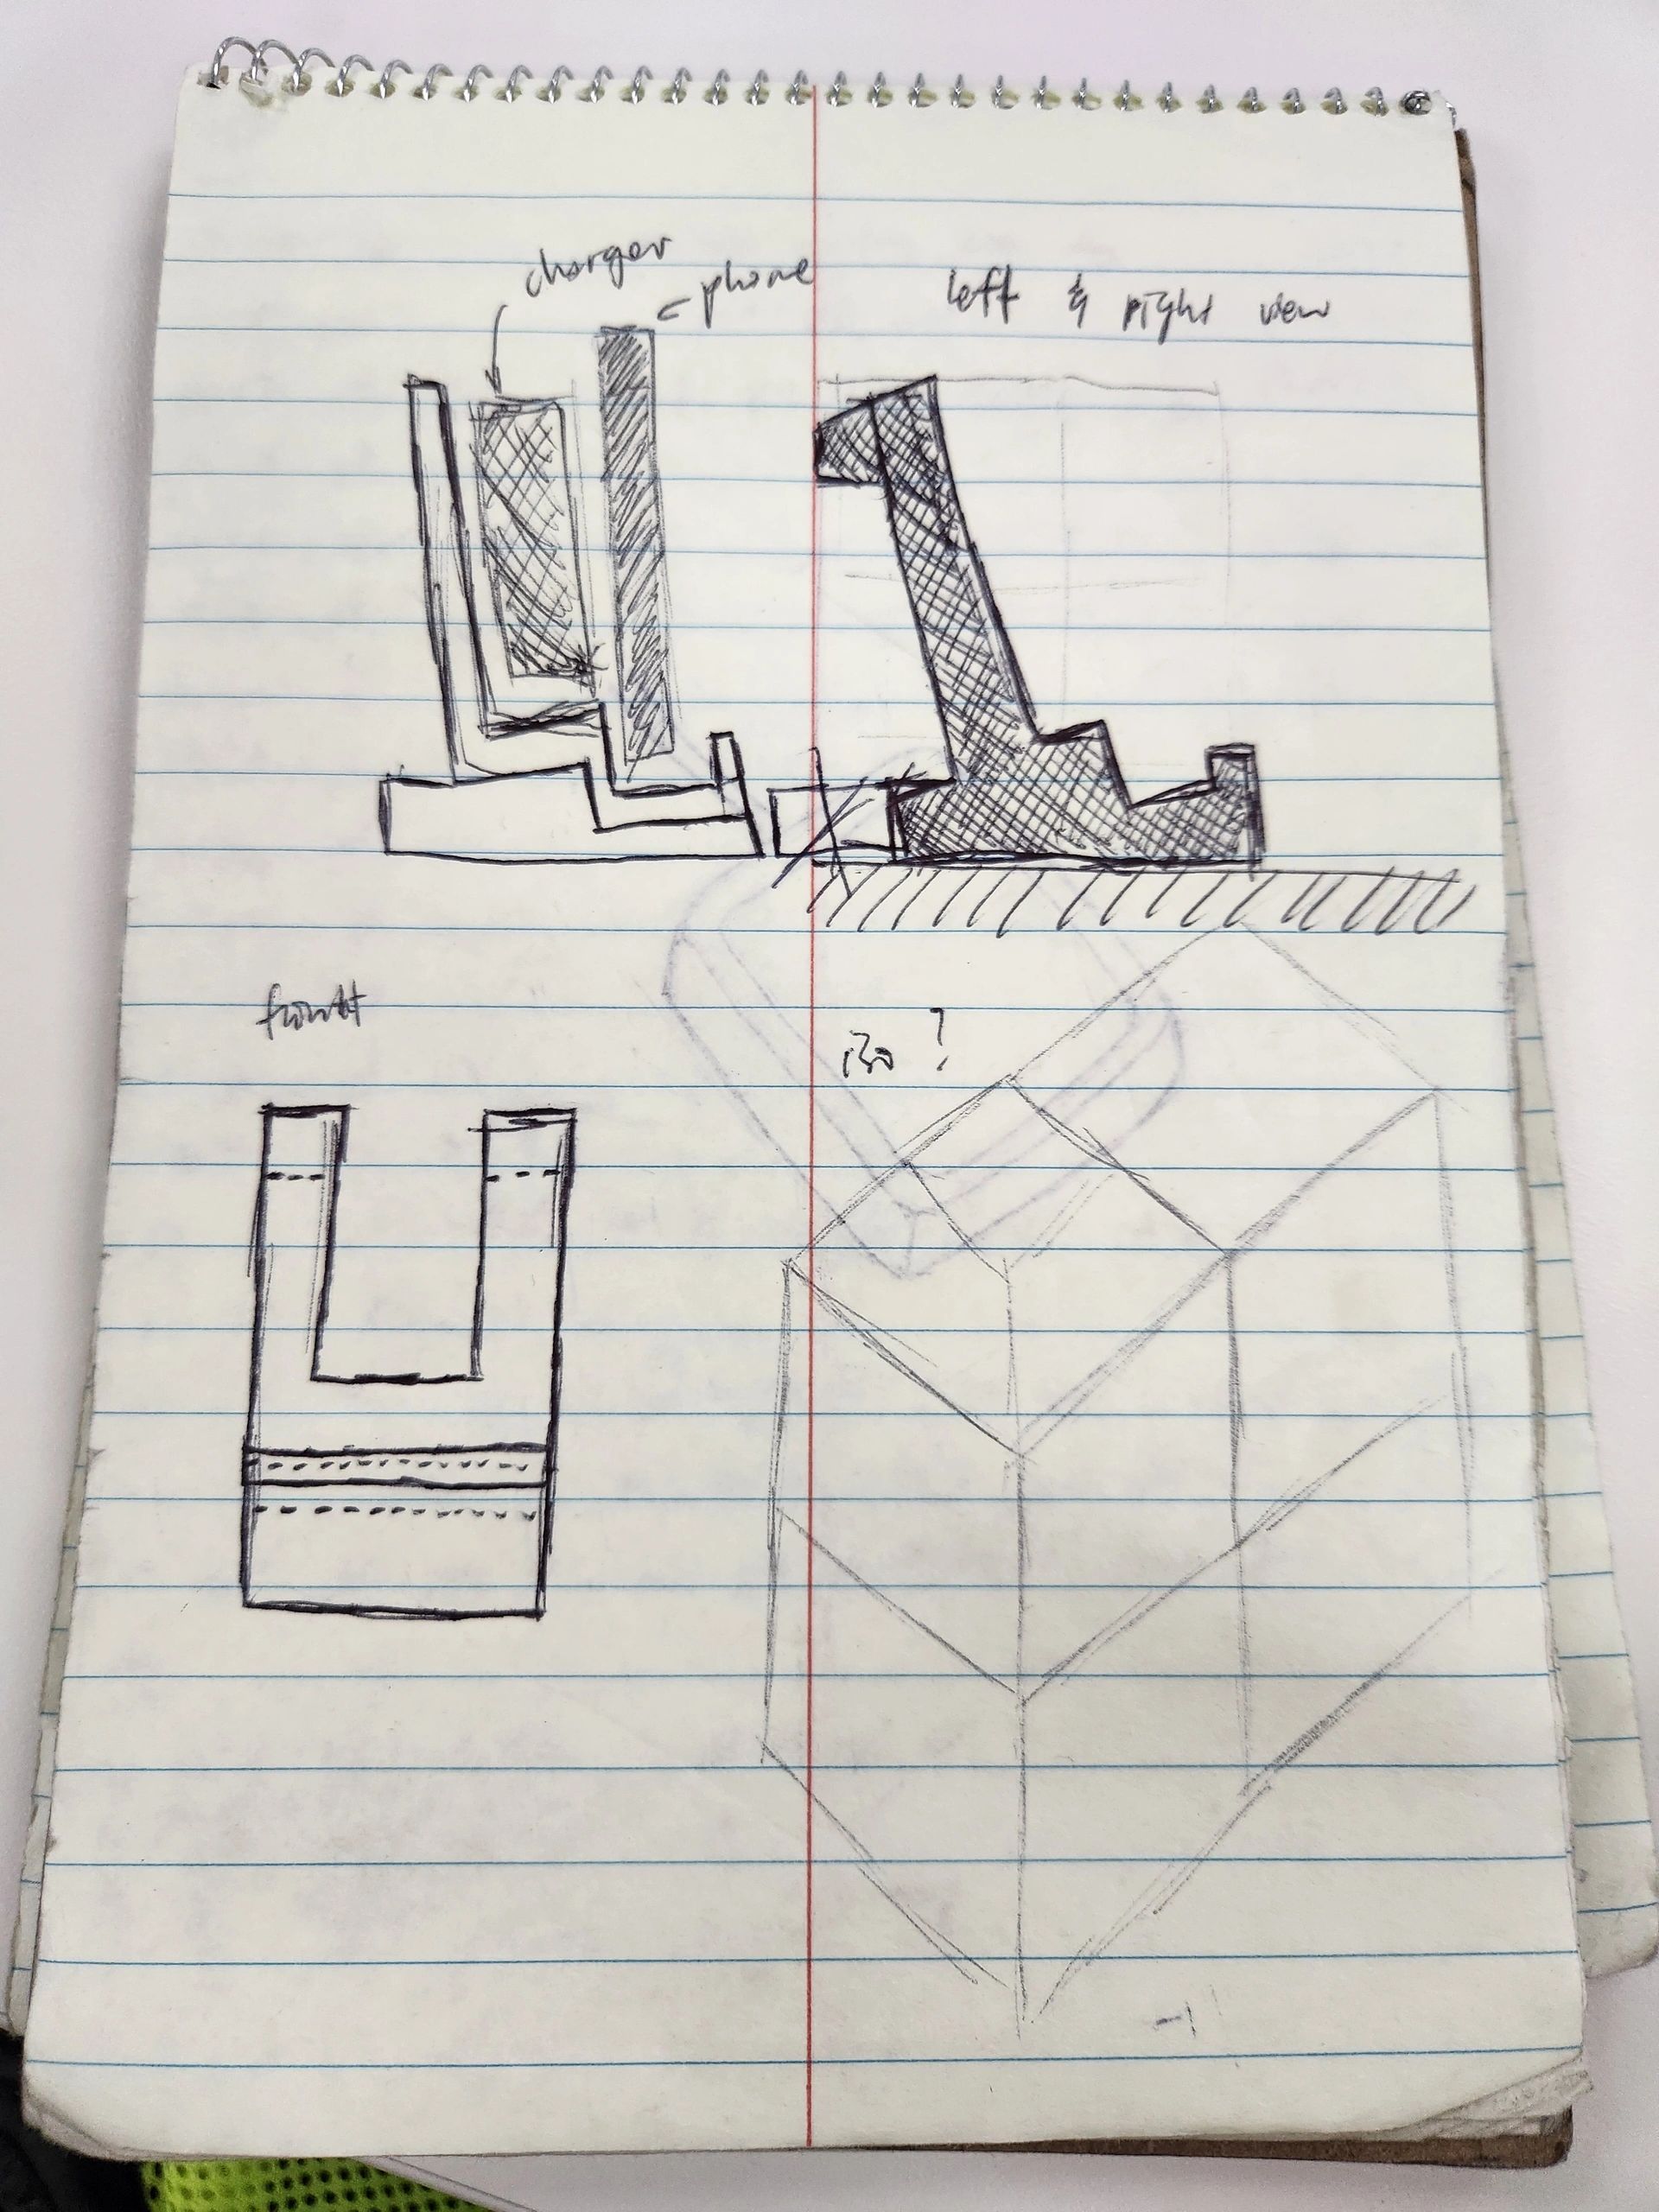 charger
phone
left & right view
front
iso ?